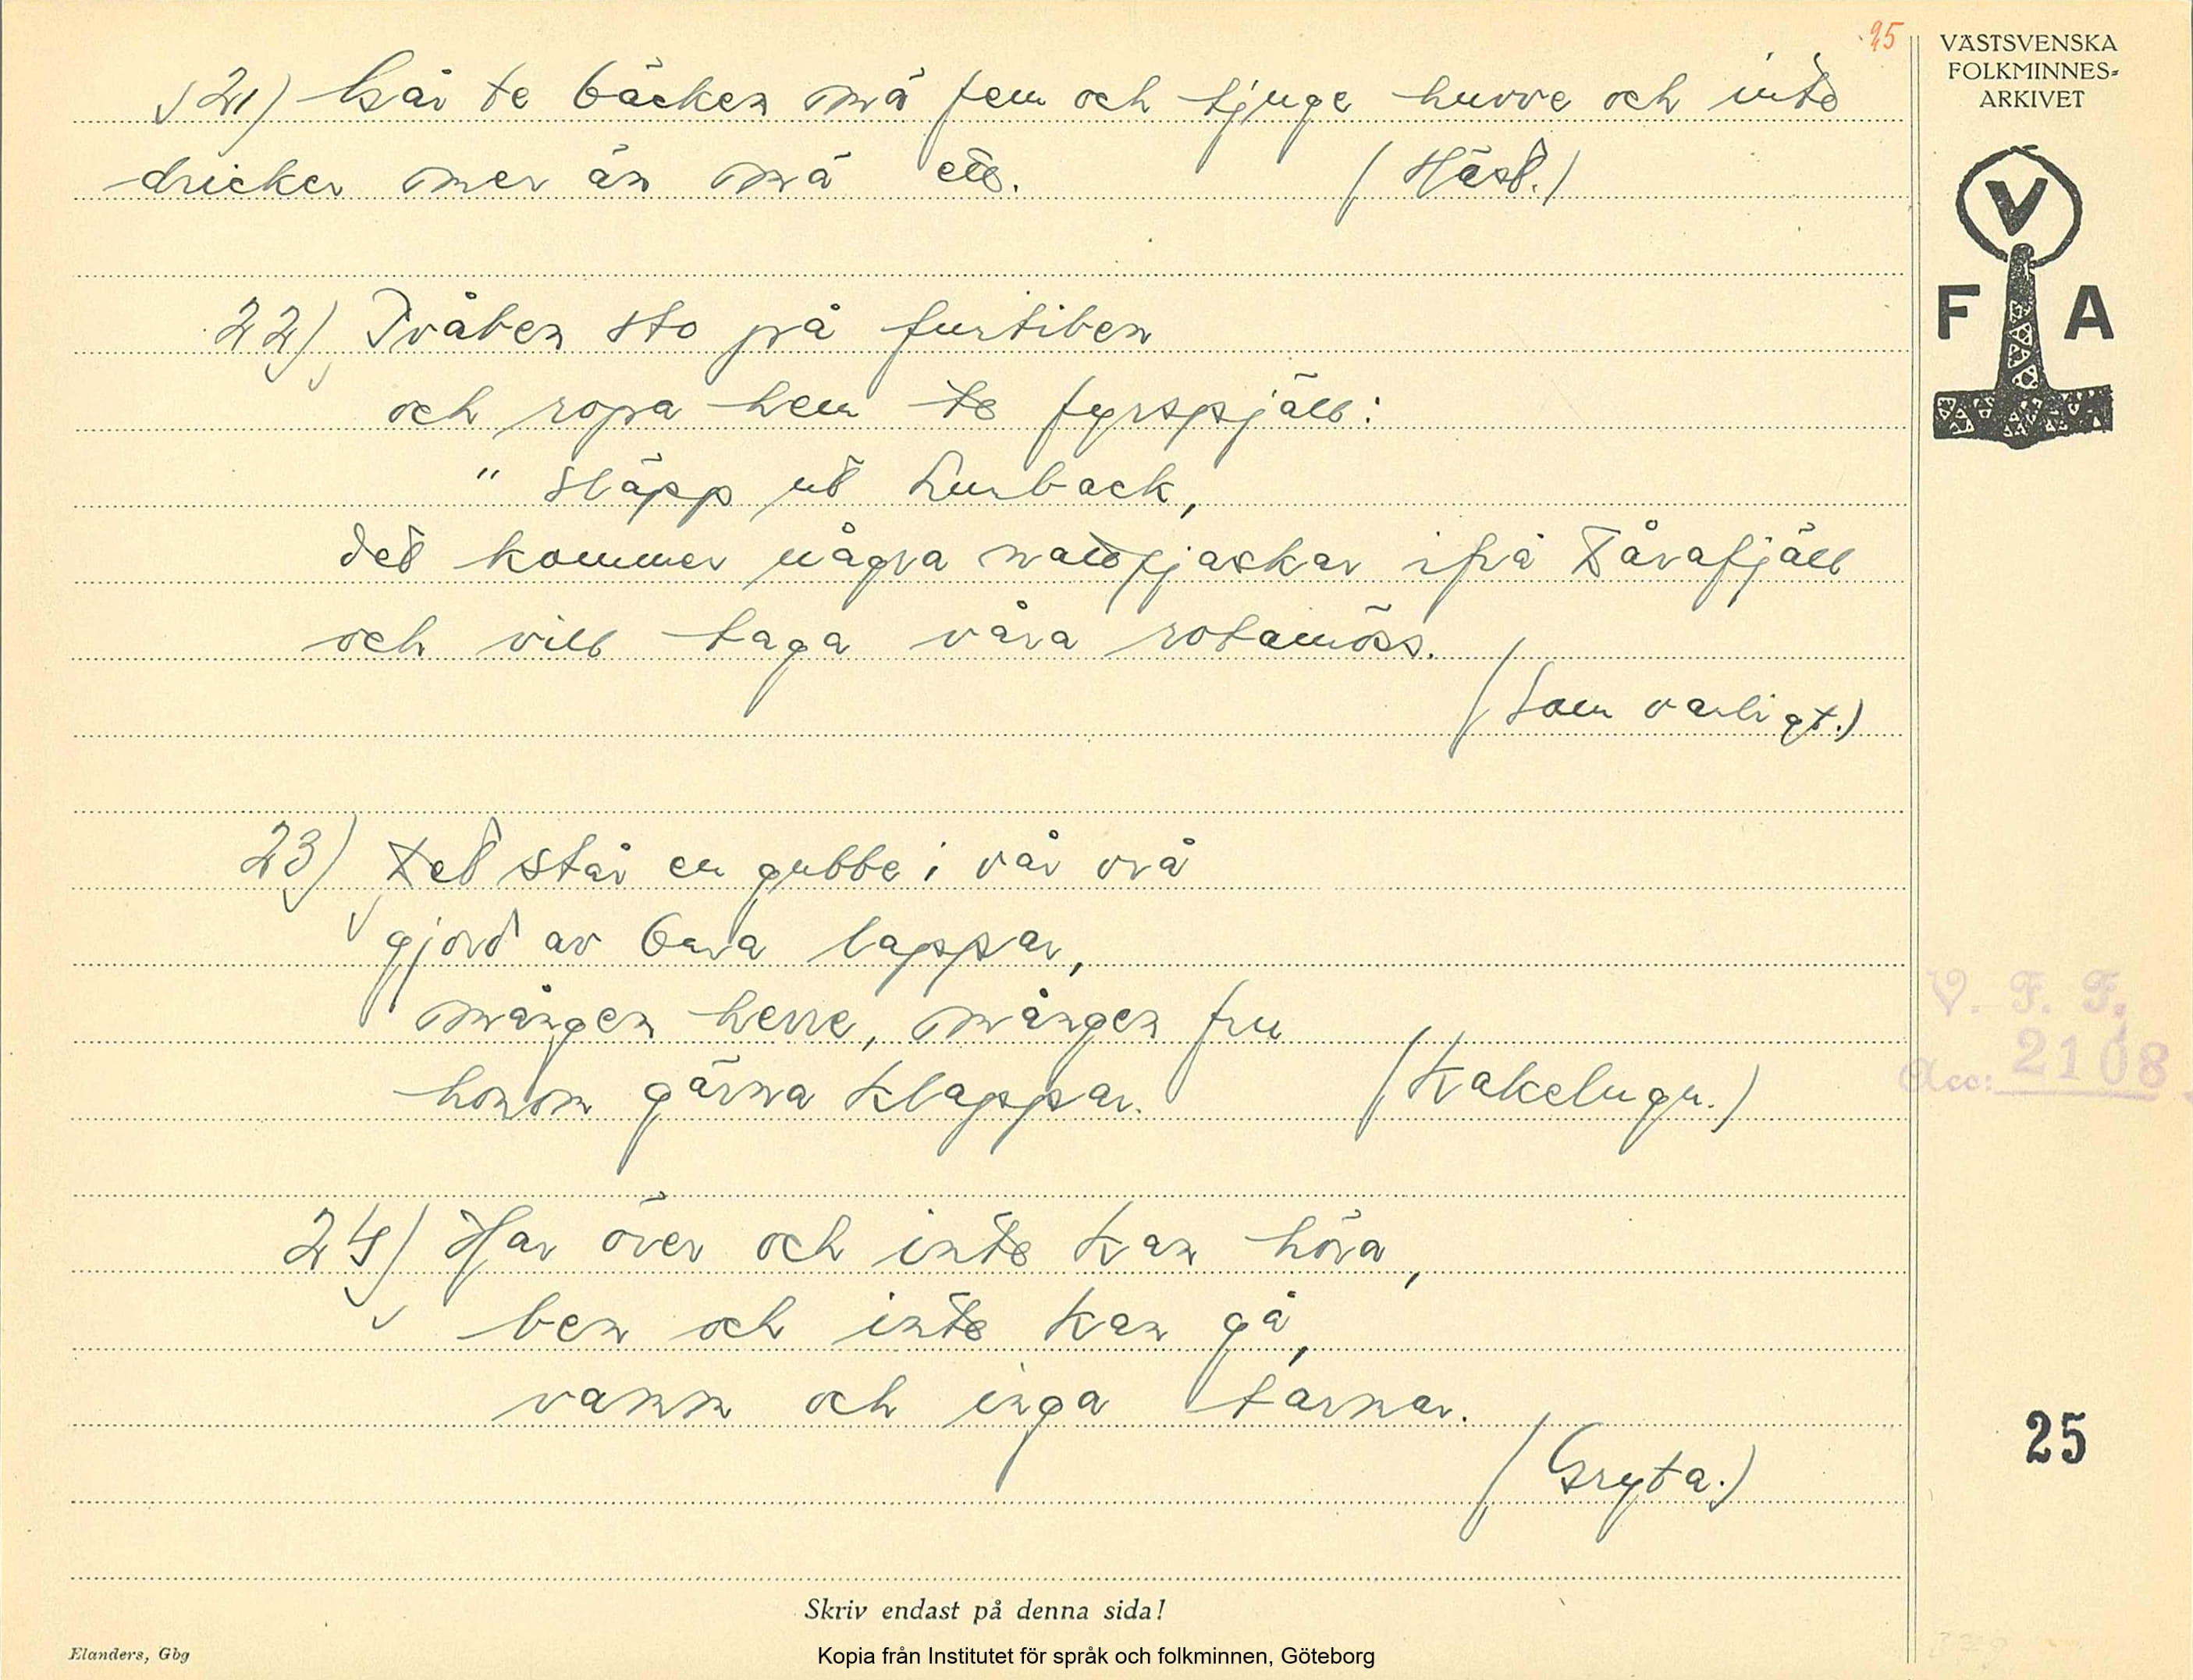 25
VÄSTSVENSKA
FOLKMINNES-
ARKIVET
V
F A
21) Går te bäcken mä fem och tjuge huvve och inte
dricker mer än mä ett. (Häst.)
22) Tvåben sto på furtiben
och ropa hem te fyrspjäll:
"Släpp ut Lurback,
det kommer några ifrå Dårafjäll
och vill taga våra rotamöss.
(Som vanligt.)
23) Det står en gubbe i vår vrå
gjord av bara lappar,
mången herre, mången fru
honom gärna klappar. (Kakelugn.)
24) Har över och inte kan höra,
ben och inte kan gå,
vamm och inga tarmar.
(Gryta.)
V. F. F.
Acc: 2108
25
Skriv endast på denna sida!
Elanders, Gbg
Kopia från Institutet för språk och folkminnen, Göteborg